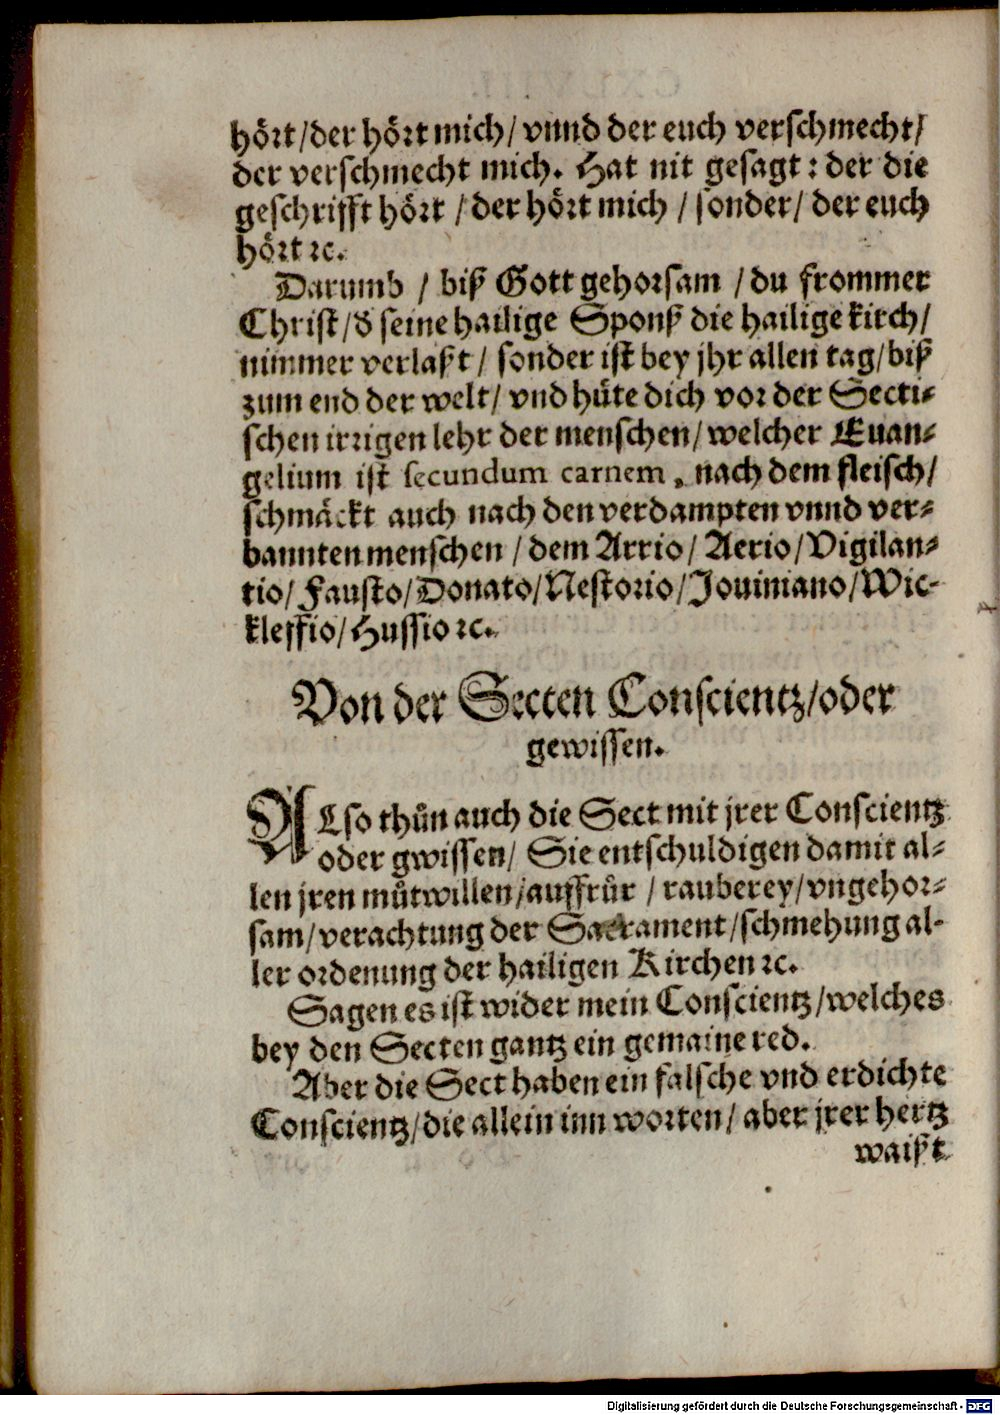 hört/der hört mich/ vnnd der euch verschmecht/
der verschmecht mich. Hat nit gesagt: der die
geschrifft hört / der hört mich / sonder/ der euch
hört ꝛc.
Darumb / biß Gott gehorsam / du frommer
Christ/ď seine hailige Sponß die hailige kirch/
nimmer verlaßt/ sonder ist bey jhr allen tag/biß
zum end der welt/ vnd hüte dich vor der Secti⸗
schen irrigen lehr der menschen/welcher Euan⸗
gelium ist secundum carnem, nach dem fleisch/
schmäckt auch nach den verdampten vnnd ver⸗
bannten menschen / dem Arrio/ Aerio/Vigilan⸗
tio/ Fausto/Donato/Nestorio/Jouiniano/Wic⸗
kleffio/Hussio ꝛc.
Von der Secten Conscientz/oder
gewissen.
ALso thůn auch die Sect mit jrer Conscientz
oder gwissen/ Sie entschuldigen damit al⸗
len jren můtwillen/auffrůr / rauberey/vngehor⸗
sam/verachtung der Sacrament/schmehung al⸗
ler ordenung der hailigen Kirchen ꝛc.
Sagen es ist wider mein Conscientz/welches
bey den Secten gantz ein gemaine red.
Aber die Sect haben ein falsche vnd erdichte
Conscientz/die allein inn worten/ aber jrer hertz
waißt
Digitalisierung gefördert durch die Deutsche Forschungsgemeinschaft - DFG